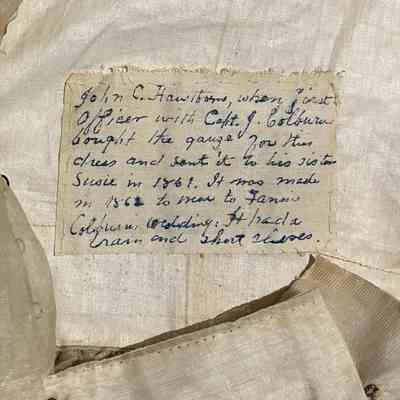 John C. Hawthorne, when First
Officer with Capt. J. Colburn
bought the gauze for this
dress and sent it to his sister
Susie in 1861. It was made
in 1862 to wear to Fannie
Colburn's wedding: It had a
train and short sleeves.